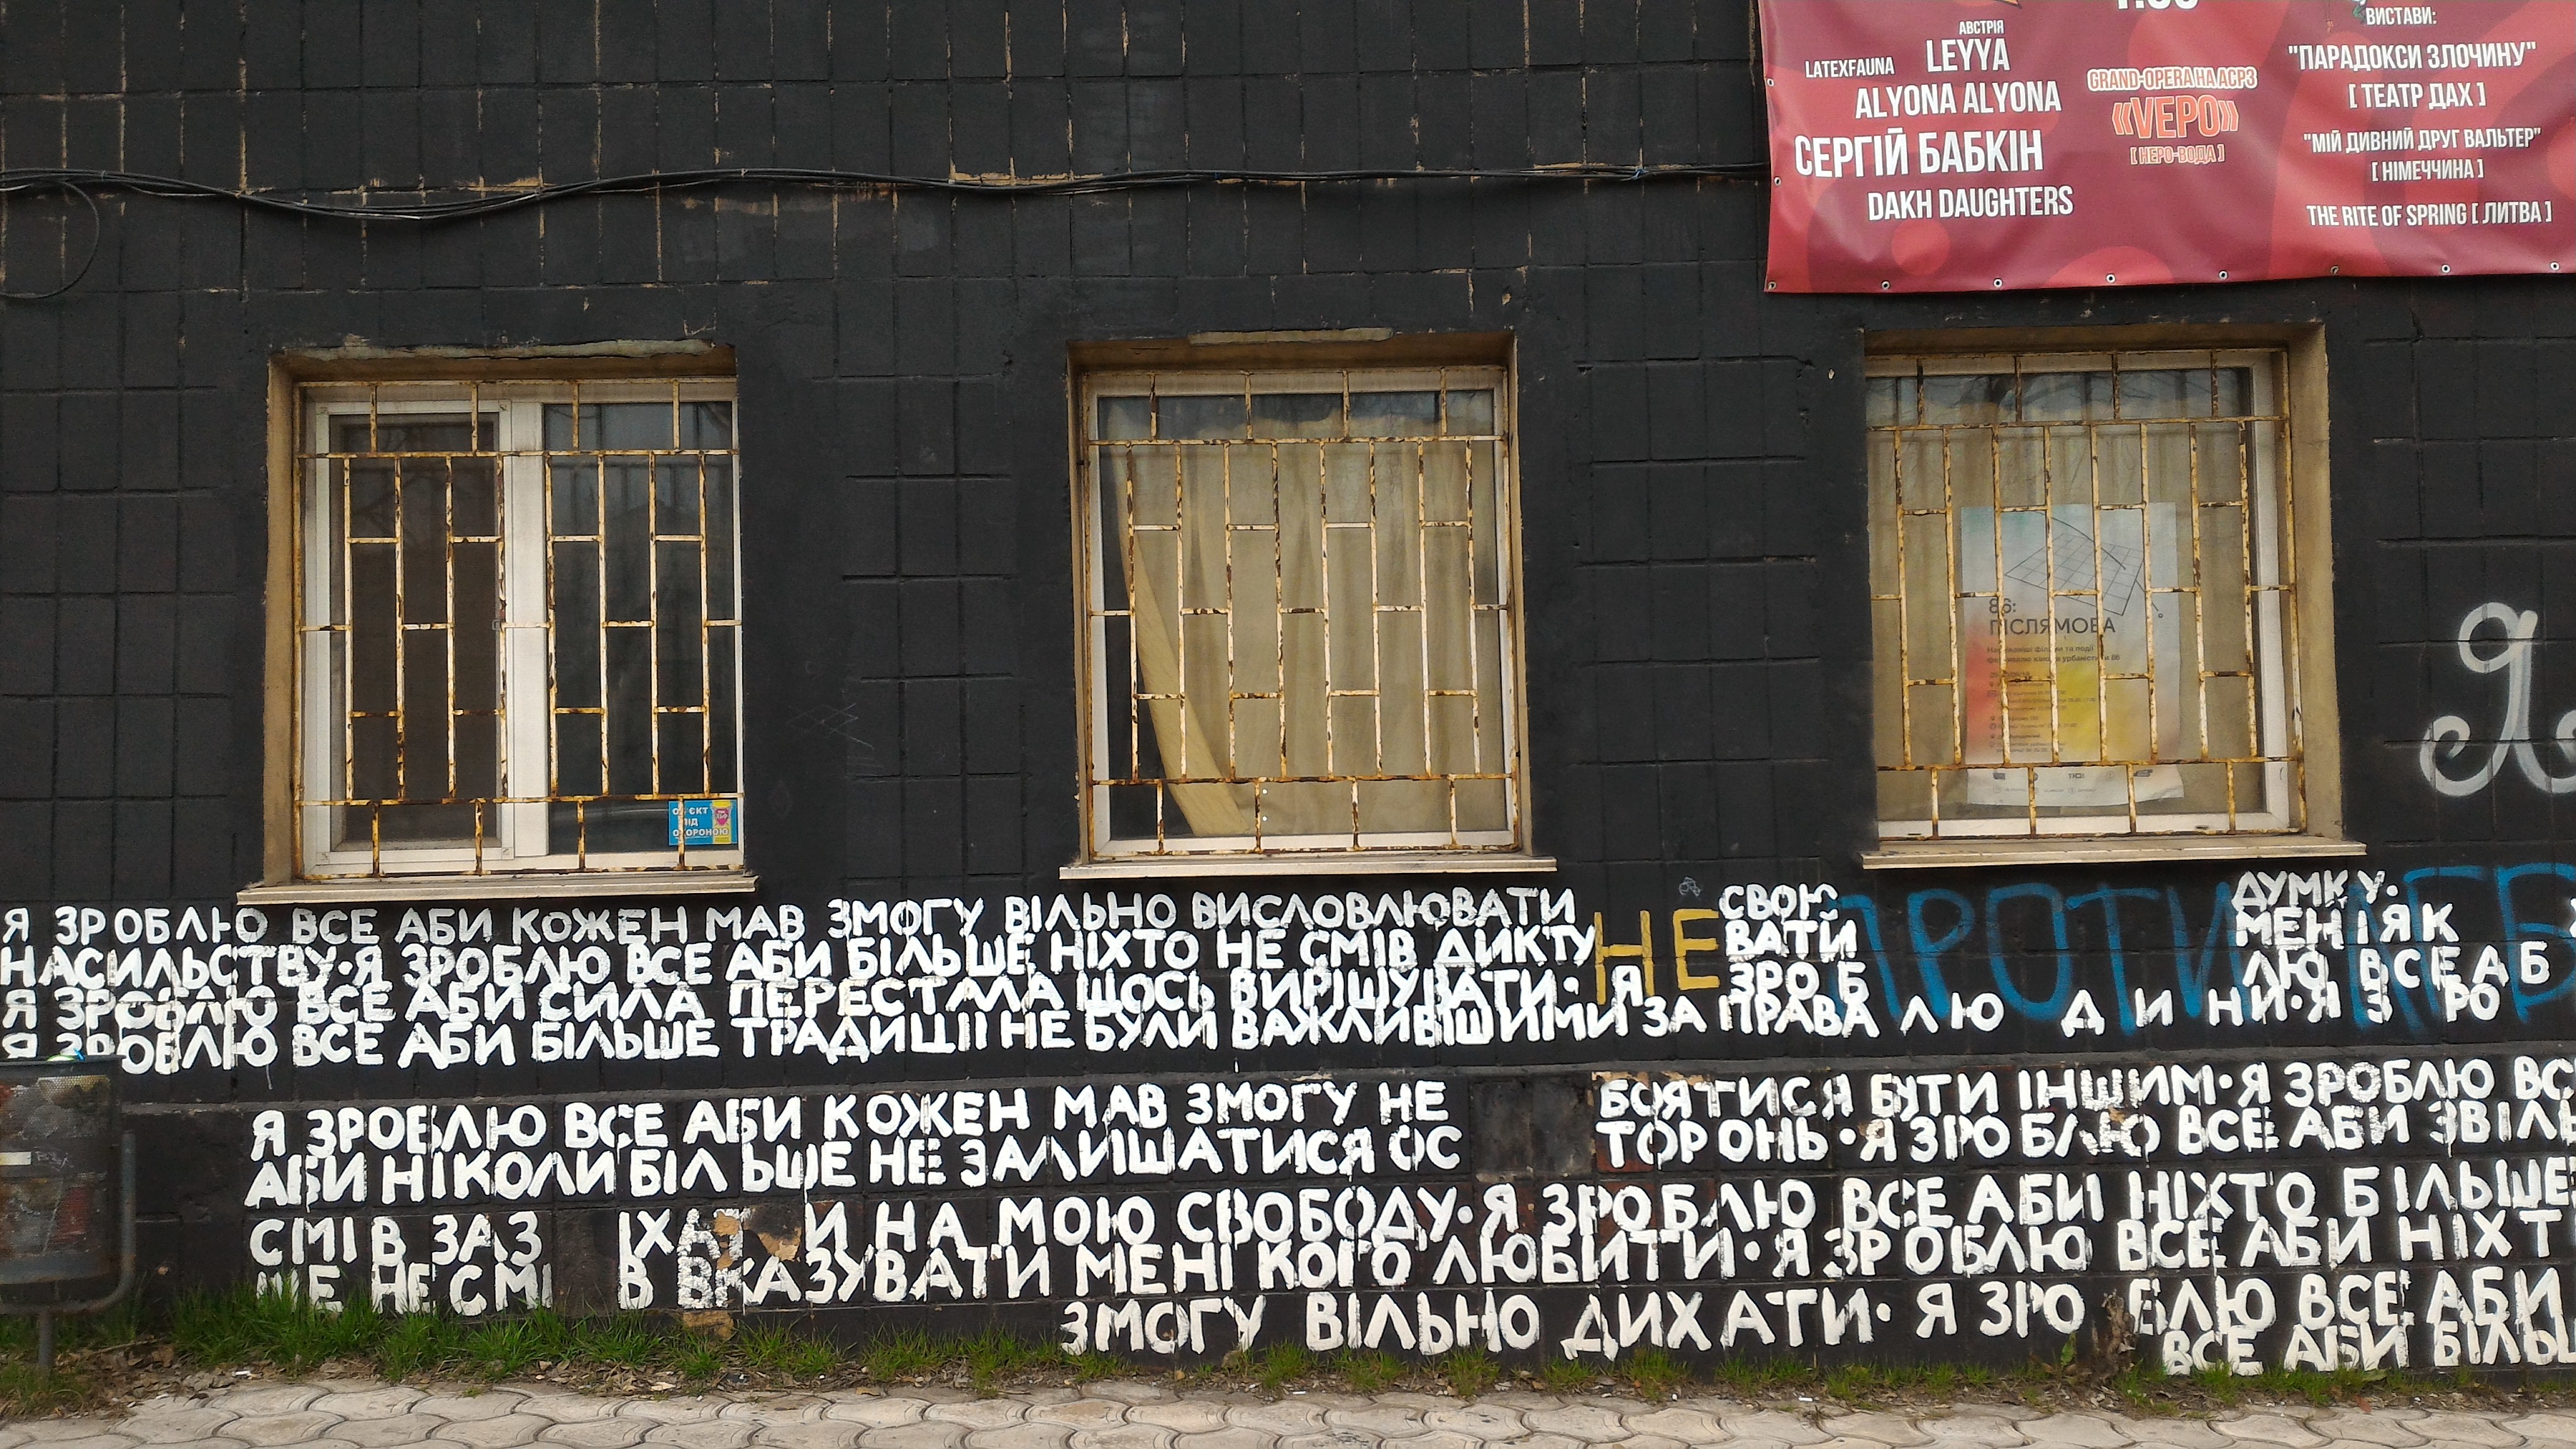 АВСТРІЯ
LATEXFAUNA LEYYA
ALYONA ALYONA
СЕРГІЙ БАБКІН
DAKH DAUGHTERS
GRAND-OPERA НА АСРЗ
«VЕРО»
[ НЕРО-ВОДА ]
ВИСТАВИ:
"ПАРАДОКСИ ЗЛОЧИНУ"
[ ТЕАТР ДАХ ]
"МІЙ ДИВНИЙ ДРУГ ВАЛЬТЕР"
[ НІМЕЧЧИНА ]
THE RITE OF SPRING [ ЛИТВА ]
86:
ПІСЛЯМОВА
ОБ'ЄКТ
ПІД
ОХОРОНОЮ
Я ЗРОБЛЮ ВСЕ АБИ КОЖЕН МАВ ЗМОГУ ВІЛЬНО ВИСЛОВЛЮВАТИ СВОЮ ДУМКУ.
НАСИЛЬСТВУ·Я ЗРОБЛЮ ВСЕ АБИ БІЛЬШЕ НІХТО НЕ СМІВ ДИКТУ ВАТИ МЕНІ ЯК
Я ЗРОБЛЮ ВСЕ АБИ СИЛА ПЕРЕСТАЛА ЩОСЬ ВИРІШУВАТИ· Я ЗРОБ ЛЮ ВСЕ АБ
Я ЗРОБЛЮ ВСЕ АБИ БІЛЬШЕ ТРАДИЦІЇ НЕ БУЛИ ВАЖЛИВІШИМИ ЗА ПРАВА ЛЮ Д И НИ·Я З РО
НЕ ПРОТИ
Я ЗРОБЛЮ ВСЕ АБИ КОЖЕН МАВ ЗМОГУ НЕ БОЯТИСЯ БУТИ ІНШИМ·Я ЗРОБЛЮ ВСЕ
АБИ НІКОЛИ БІЛЬШЕ НЕ ЗАЛИШАТИСЯ ОС ТОРОНЬ·Я ЗРОБЛЮ ВСЕ АБИ ЗВІЛЬ
СМІВ ЗАЗ ІХАТИ НА МОЮ СВОБОДУ·Я ЗРОБЛЮ ВСЕ АБИ НІХТО БІЛЬШЕ
ШЕ НЕ СМІ В ВКАЗУВАТИ МЕНІ КОГО ЛЮБИТИ·Я ЗРОБЛЮ ВСЕ АБИ НІХТ
ЗМОГУ ВІЛЬНО ДИХАТИ· Я ЗРО БЛЮ ВСЕ АБИ
ВСЕ АБИ БІЛЬ